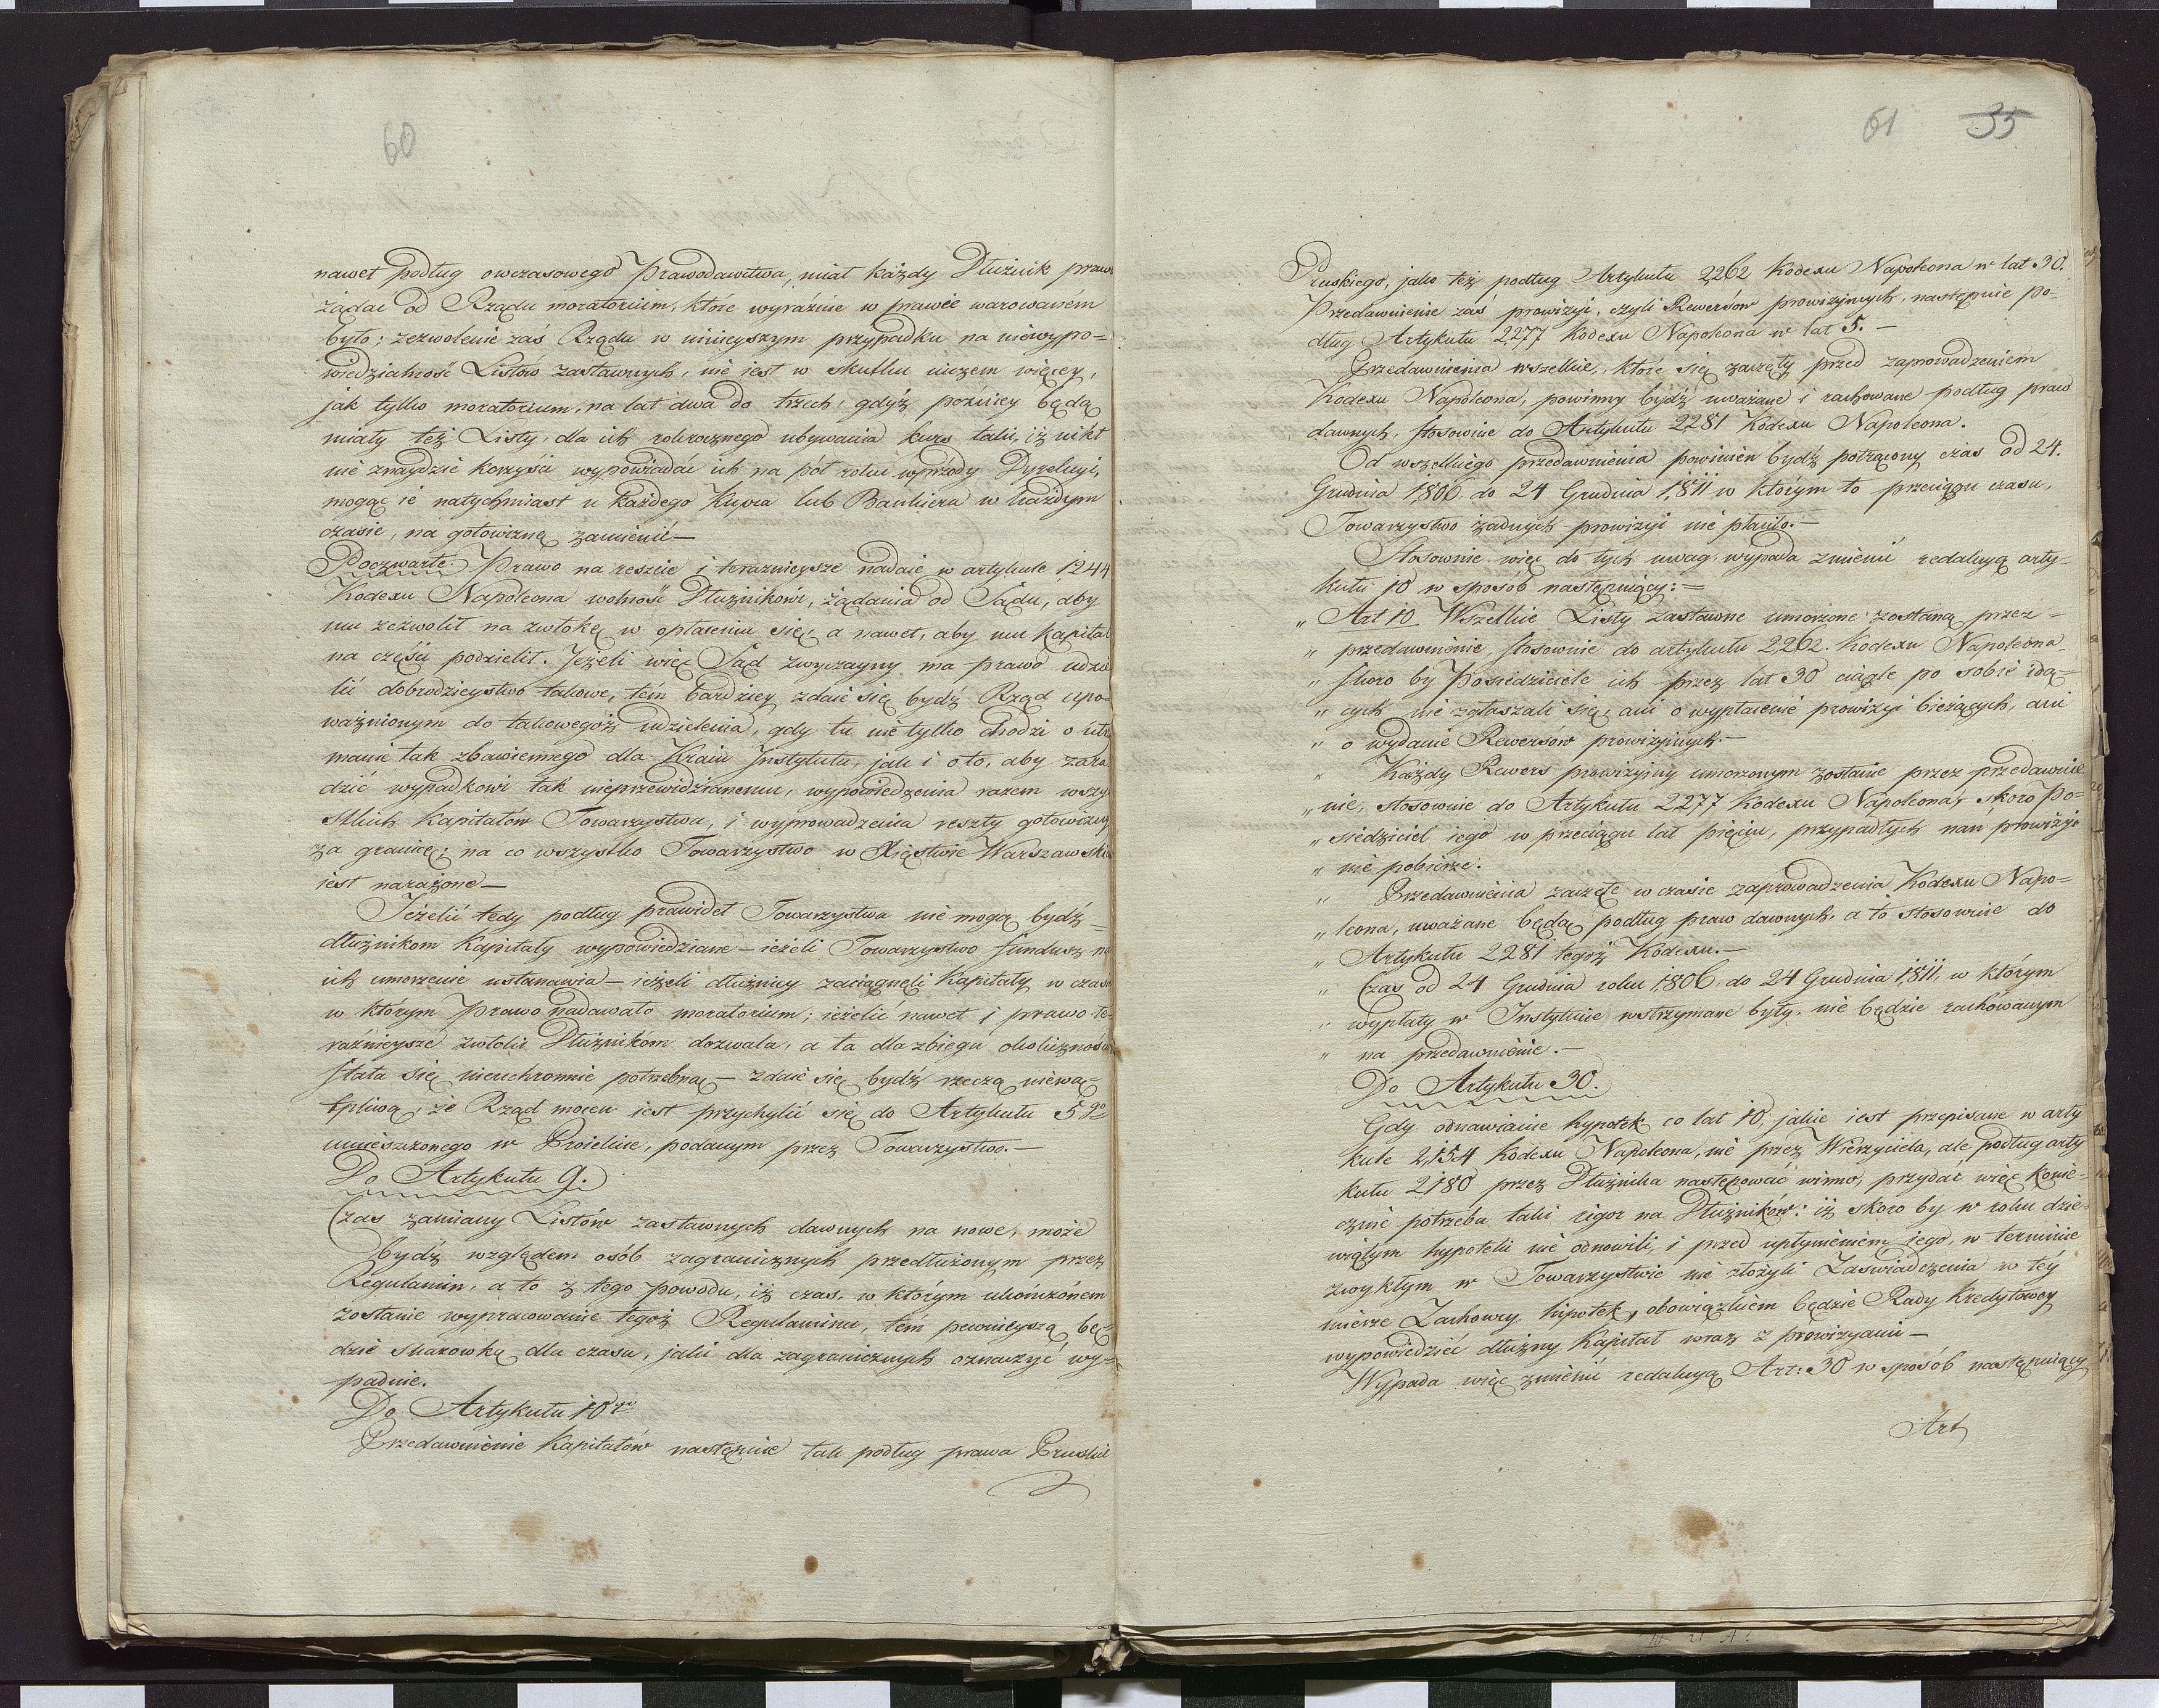 60
nawet podług owczasowego Prawodawctwa, miał każdy Dłużnik prawo
żądać od Rządu moratorium, które wyraźnie w prawie warowaném
było; zezwolenie zaś Rządu w ninieyszym przypadku na niewypo=
wiedzialność Listów zastawnych, nie iest w skutku niczem więcey,
jak tylko moratorium, na lat dwa do trzech, gdyż poźniey będą
miały też Listy, dla ich rokrocznego ubywania kurs taki, iż nikt
nie znaydzie korzyści wypowiadać ich na pół roku wprzódy Dyrekcyi,
mogąc ie natychmiast u każdego Kupca lub Bankiera w każdym
czasie, na gotowiznę zamienić—
Poczwarte. Prawo na reszcie i teraznieysze nadaie w artykule 1244
Kodexu Napoleona wolność Dłużnikowi, żądania od Sądu, aby
mu zezwolił na zwłokę w opłaceniu się, a nawet, aby mu Kapitał
na części podzielił. Jeżeli więc Sąd zwyczayny ma prawo udzie
lić dobrodzieystwo takowe, tém bardziey zdaie się bydź Rząd upo-
ważnionym do takowegoż udzielenia, gdy tu nie tylko chodzi o utrz
manie tak zbawiennego dla Kraiu Jnstytutu, jak i o to, aby zara
dzić wypadkowi tak nieprzewidzianemu, wypowiedzenia razem wszy
stkich Kapitałów Towarzystwa, i wyprowadzenia reszty gotowizny
za granicę; na co wszystko Towarzystwo w Xięstwie Warszawskim
iest narażone—
Jeżelić tedy podług prawideł Towarzystwa nie mogą bydź=
dłużnikom Kapitały wypowiedziane — ieżeli Towarzystwo fundusz na
ich umorzenie ustanawia — ieżeli dłużnicy zaciągnęli Kapitały w czasie
w którym Prawo nadawało moratorium; ieżelić nawet i prawo te-
raźnieysze zwłoki Dłużnikom dozwala, a ta dla zbiegu okoliczności
stała się nieuchronnie potrzebną — zdaie się bydź rzeczą niewą=
tpliwą, że Rząd mocen iest przychylić się do Artykułu 5go
umieszczonego w Proiekcie, podanym przez Towarzystwo.—
Do Artykułu 9.
Czas zamiany Listów zastawnych dawnych na nowe, może
bydź względem osób zagranicznych przedłużonym przez
Regulamin, a to z tego powodu, iż czas, w którym ukończonem
zostanie wypracowanie tegoż Regulaminu, tem pewnieyszą bę=
dzie skazowką dla czasu, jaki dla zagranicznych oznaczyć wy=
padnie.
Do Artykułu 10go
Przedawnienie Kapitałów następuie tak podług prawa Pruskie
61 35
Pruskiego, jako też podług Artykułu 2262 Kodexu Napoleona w lat 30.
Przedawnienie zaś prowizyi, czyli Rewersów prowizyinych, następuie po-
dług Artykułu 2277 Kodexu Napoleona w lat 5.—
Przedawnienia wszelkie, które się zaczęły przed zaprowadzeniem
Kodexu Napoleona, powinny bydź uważane i rachowane podług praw
dawnych, stosownie do Artykułu 2281 Kodexu Napoleona.
Od wszelkiego przedawnienia powinien bydź potrącony czas od 24.
Grudnia 1806. do 24 Grudnia 1811 w którym to przeciągu czasu,
Towarzystwo żadnych prowizyi nie płaciło.—
Stosownie więc do tych uwag, wypada zmienić redakcyą arty-
kułu 10 w sposób następuiący:=
„ Art 10 Wszelkie Listy zastawne umorzone zostaną przez=
„ przedawnienie, stosownie do artykułu 2262. Kodexu Napoleona
„ skoro by Posiedziciele ich przez lat 30 ciągle po sobie idą=
„ cych nie zgłaszali się, ani o wypłacenie prowizyi bieżących, ani
„ o wydanie Rewersow prowizyinych.—
„ Każdy Rewers prowizyiny umorzonym zostanie przez przedawnie
„ nie, stosownie do Artykułu 2277 Kodexu Napoleona, skoro Po=
„ siedziciel iego w przeciągu lat pięciu, przypadłych nań prowizyi
„ nie pobierze.
„ Przedawnienia zaczęte w czasie zaprowadzenia Kodexu Napo=
„ leona, uważane będą podług praw dawnych, a to stosownie do
„ Artykułu 2281 tegoż Kodexu.—
„ Czas od 24 Grudnia roku 1806. do 24 Grudnia 1811, w którym
„ wypłaty w Jnstytucie wstrzymane były, nie będzie rachowanym
„ na przedawnienie.—
Do Artykułu 30.
Gdy odnawianie hypotek co lat 10, jakie iest przepisane w arty
kule 2154 Kodexu Napoleona, nie przez Wierzyciela, ale podług arty
kułu 2180 przez Dłużnika następować winno, przydać więc konie=
cznie potrzeba taki rigor na Dłużników: iż skoro by w roku dzie-
wiątym hypoteki nie odnowili, i przed upłynieniem iego, w terminie
zwykłym w Towarzystwie nie złożyli Zaswiadczenia w téy
mierze Zachowcy hipotek, obowiązkiem będzie Rady Kredytowey
wypowiedzieć dłużny Kapitał wraz z prowizyami—
Wypada więc zmienić redakcyą Art: 30 w sposób następuiący
Art